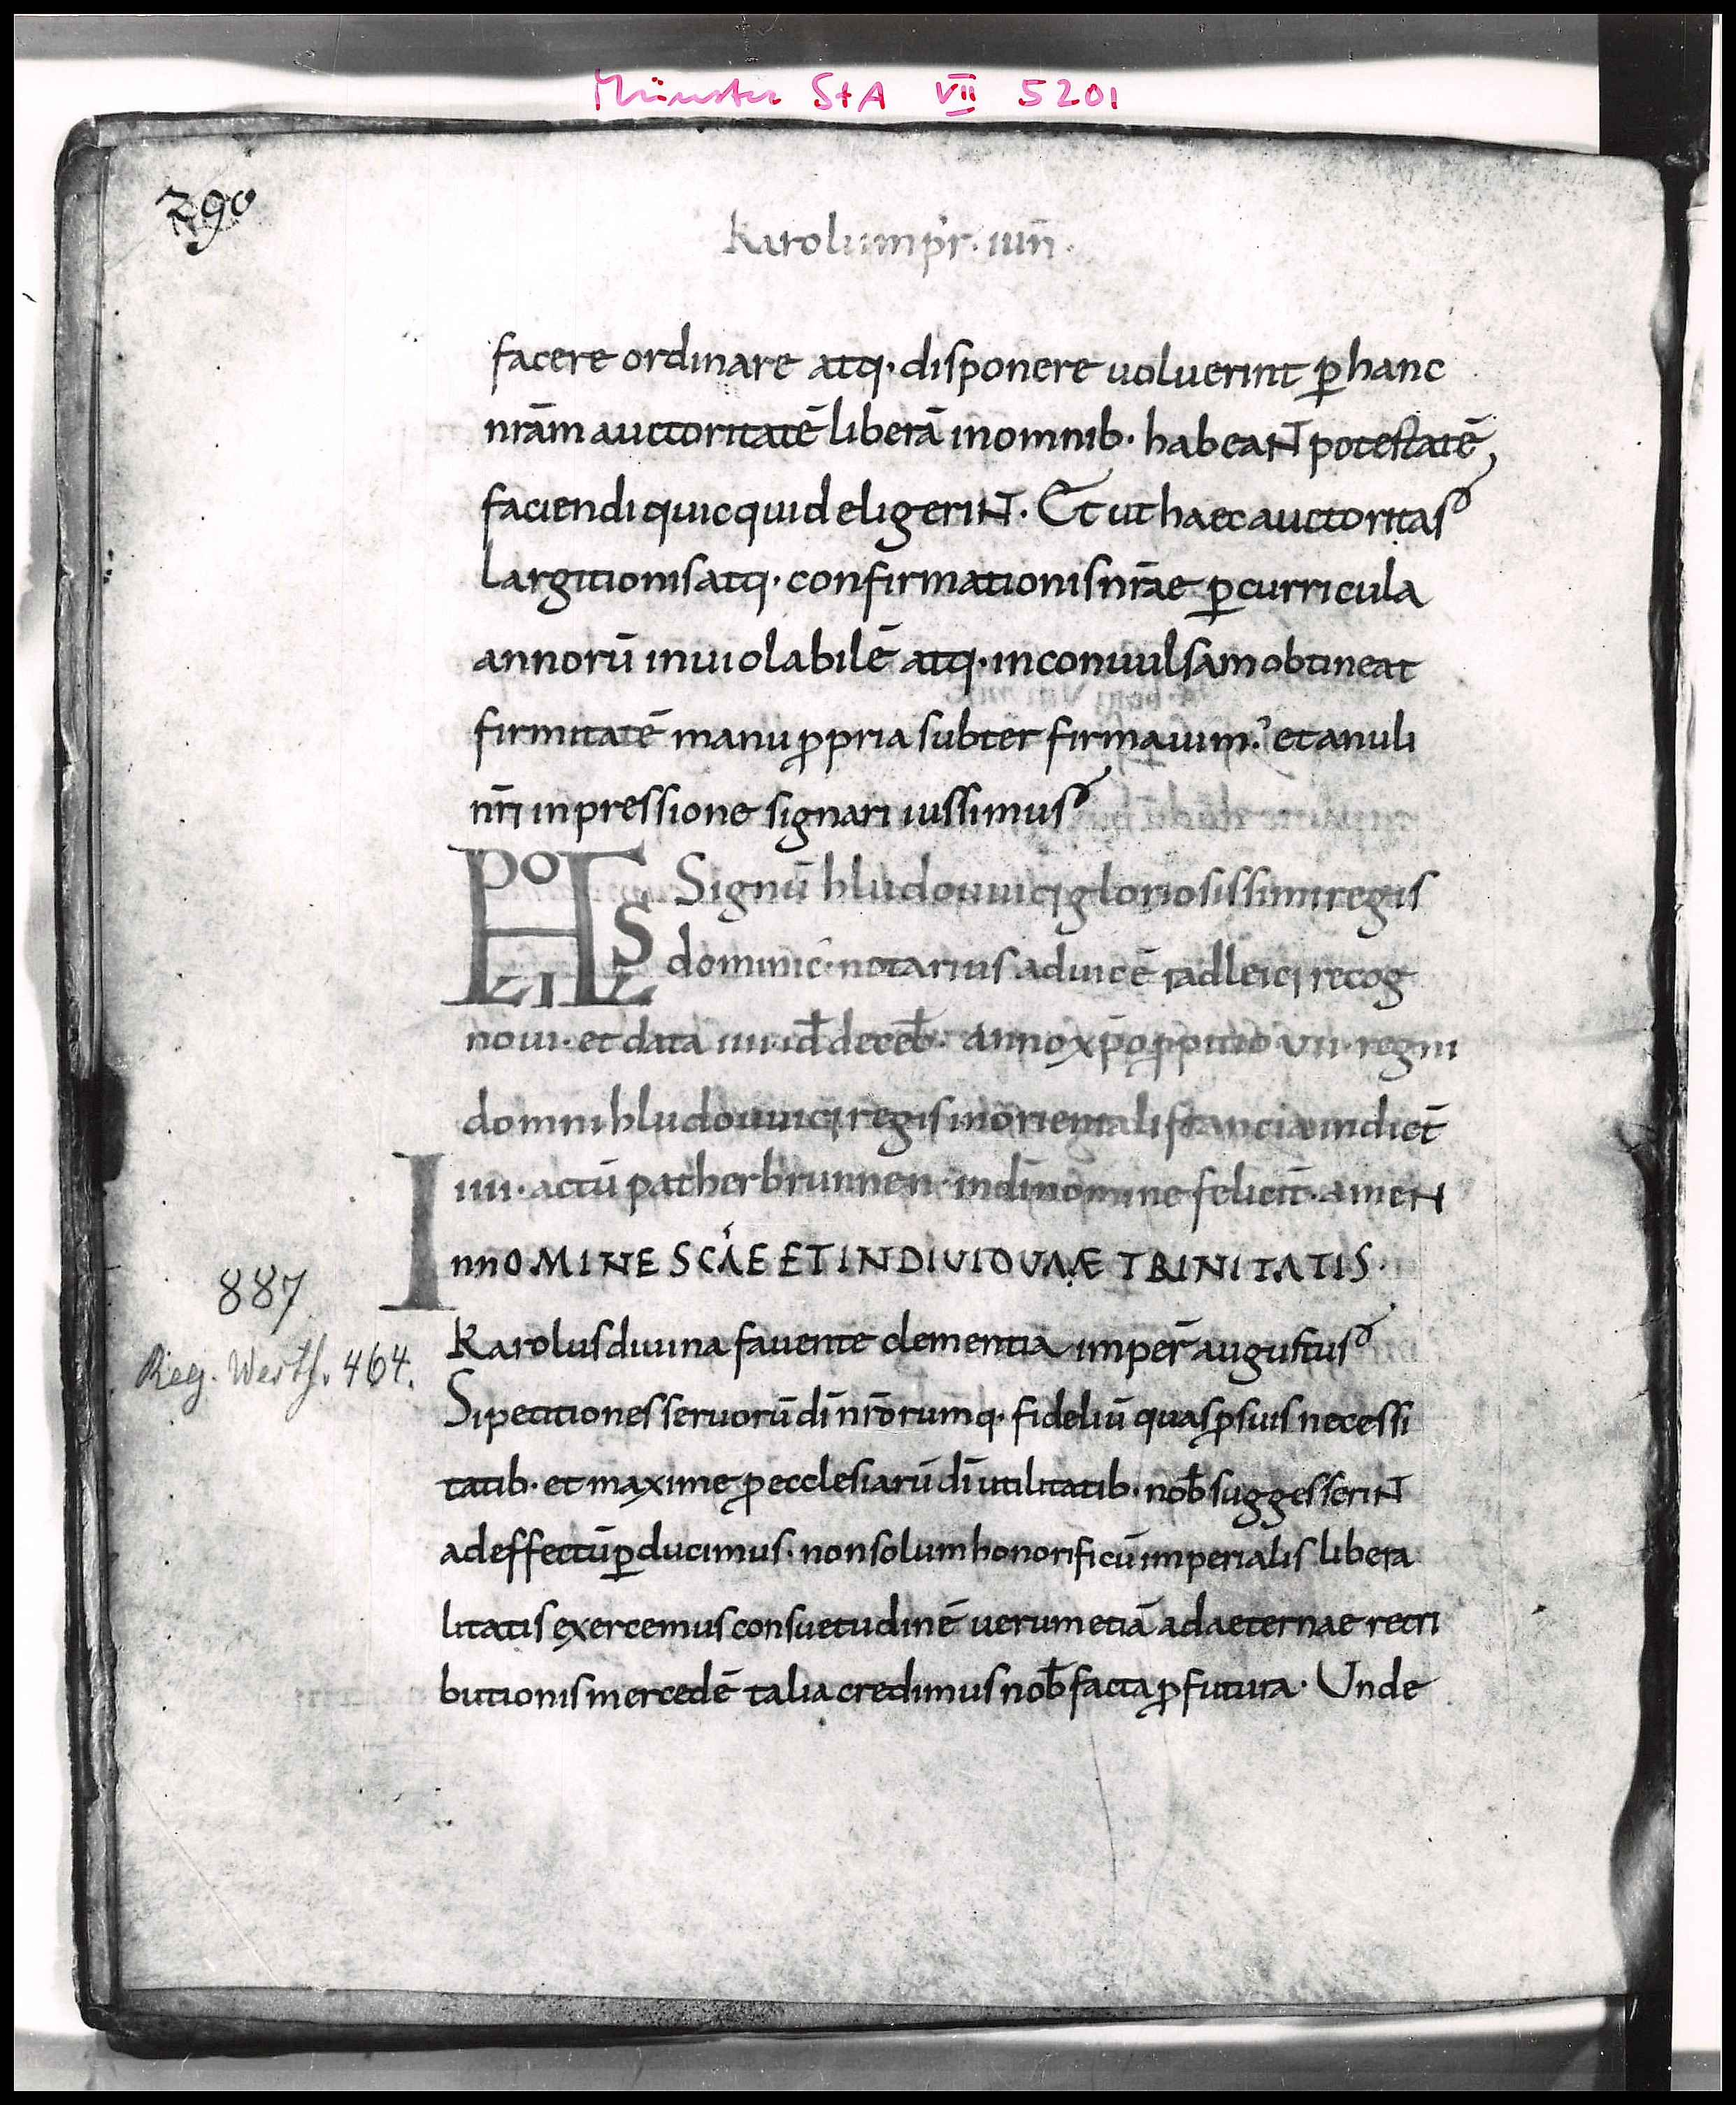 Münster StA VII 5201
290
Karolum pr̄. iun̄.
facere ordinare atq· disponere uoluerint ꝑ hanc
nr̄am auctoritatē liberā inomnib· habeaNT potestatē,
faciendi quicquid eligeriNT· Et ut haec auctoritas
Largitionis atq· confirmationis nr̄ae ꝑ curricula
annorū inuiolabilē atq· inconuulsam obtineat
firmitatē manu ꝓpria subter firmauim᾿· et anuli
nr̄i inpressione signari iussimus
Signū hludouuici gloriosissimi regis
dominic· notarius aduicē radleici recog
noui· et data iiii· id̄ deceb̄· anno xp̄o ꝓpitio vii· regni
domni hludouuici regis in orientali francia indict̄
iiii· actū patherbrunnen· in dī nomine felicit̄· ameN
InnOMINE SCĀE ET INDIUIDUAE TRINITATIS·
887
Karolus diuina fauente clementia imper̄ augustus
Reg. Westf. 464.
Si petitiones seruorū dī nr̄orumq· fideliū quas ꝓ suis necessi
tatib· et maxime ꝓ ecclesiarū dī utilitatib· nob̄ suggesseriNT
ad effectū ꝑducimus· non solum honorificū imperialis libera
litatis exercemus consuetudinē uerum etiā ad aeternae retri
butionis mercedē talia credimus nob̄ facta ꝓfutura· Unde